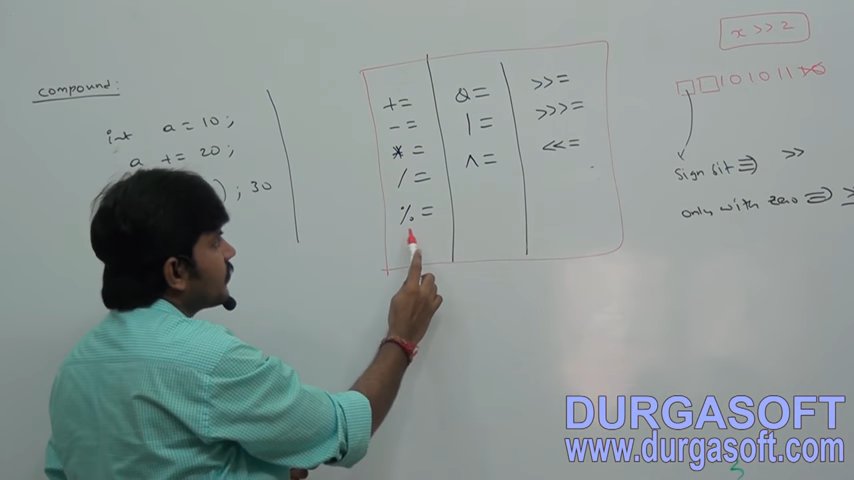 compound:
int a = 10;
a += 20;
) ; 30
+=
-=
*=
/=
%=
&=
|=
^=
>>=
>>>=
<<=
x >> 2
101011
sign bit => >>
only with zero =>
DURGASOFT
www.durgasoft.com